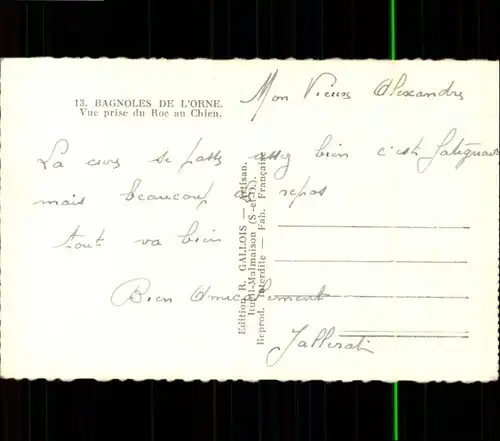 13. BAGNOLES DE L'ORNE.
Vue prise du Roc au Chien.
Mon Vieux Alexandre
La cure se passe assez bien c'est fatiguant
mais beaucoup de repos
tout va bien
Bien Amicalement
Edition R. GALLOIS — Artisan.
Rueil-Malmaison (S.-et-O.).
Reprod. Interdite — Fab. Française